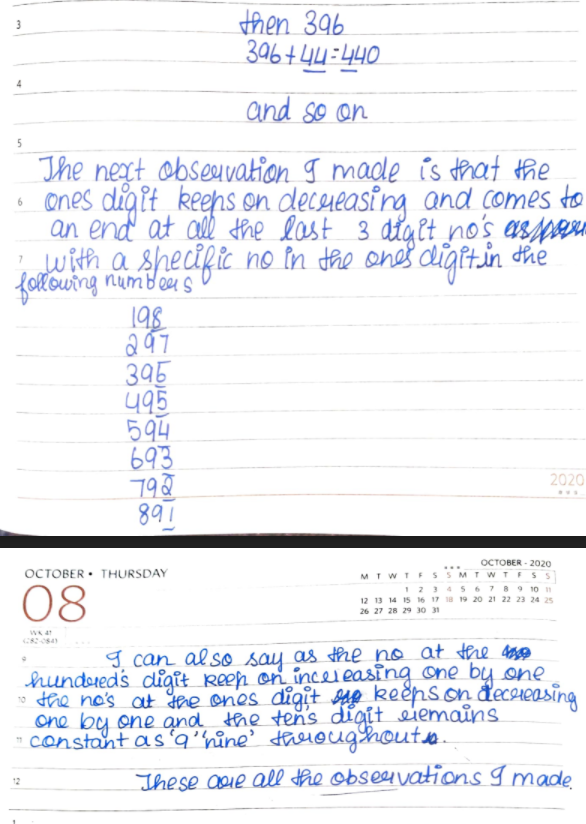 3
then 396
396+44=440
4
and so on
5
The next observation I made is that the
6 ones digit keeps on decreasing and comes to
an end at all the last 3 digit no's
7 with a specific no in the ones digit in the
following numbers
198
297
396
495
594
693
792
891
2020
OCTOBER • THURSDAY
08
WK 41
(282-084)
OCTOBER - 2020
M T W T F S S M T W T F S S
1 2 3 4 5 6 7 8 9 10 11
12 13 14 15 16 17 18 19 20 21 22 23 24 25
26 27 28 29 30 31
9 I can also say as the no at the
hundred's digit keep on increasing one by one
10 the no's at the ones digit keeps on decreasing
one by one and the ten's digit remains
11 constant as '9' 'nine' throughout.
12 These are all the observations I made.
1